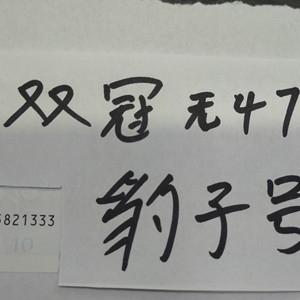 双冠 无47
豹子号
5821333
10